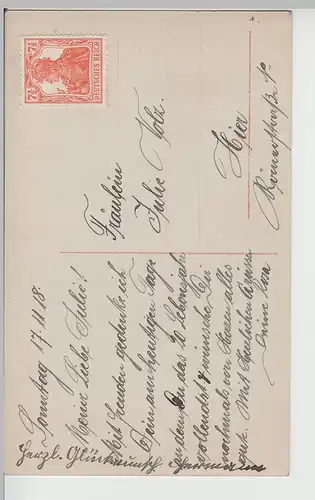 7½ 7½
DEUTSCHES REICH
Fräulein
Julie Volz
Hier
Römerstraße
Sonntag 17.11.18.
Meine liebe Julie!
Mit Freuden gedenke ich
Dein am heutigen Tage
an dem Du das 20 Lebensjahr
vollendet & wünsche Dir
nochmals von Herzen alles
gute. Mit herzlichen Küssen
Deine
Herzl. Glückwunsch Hermann